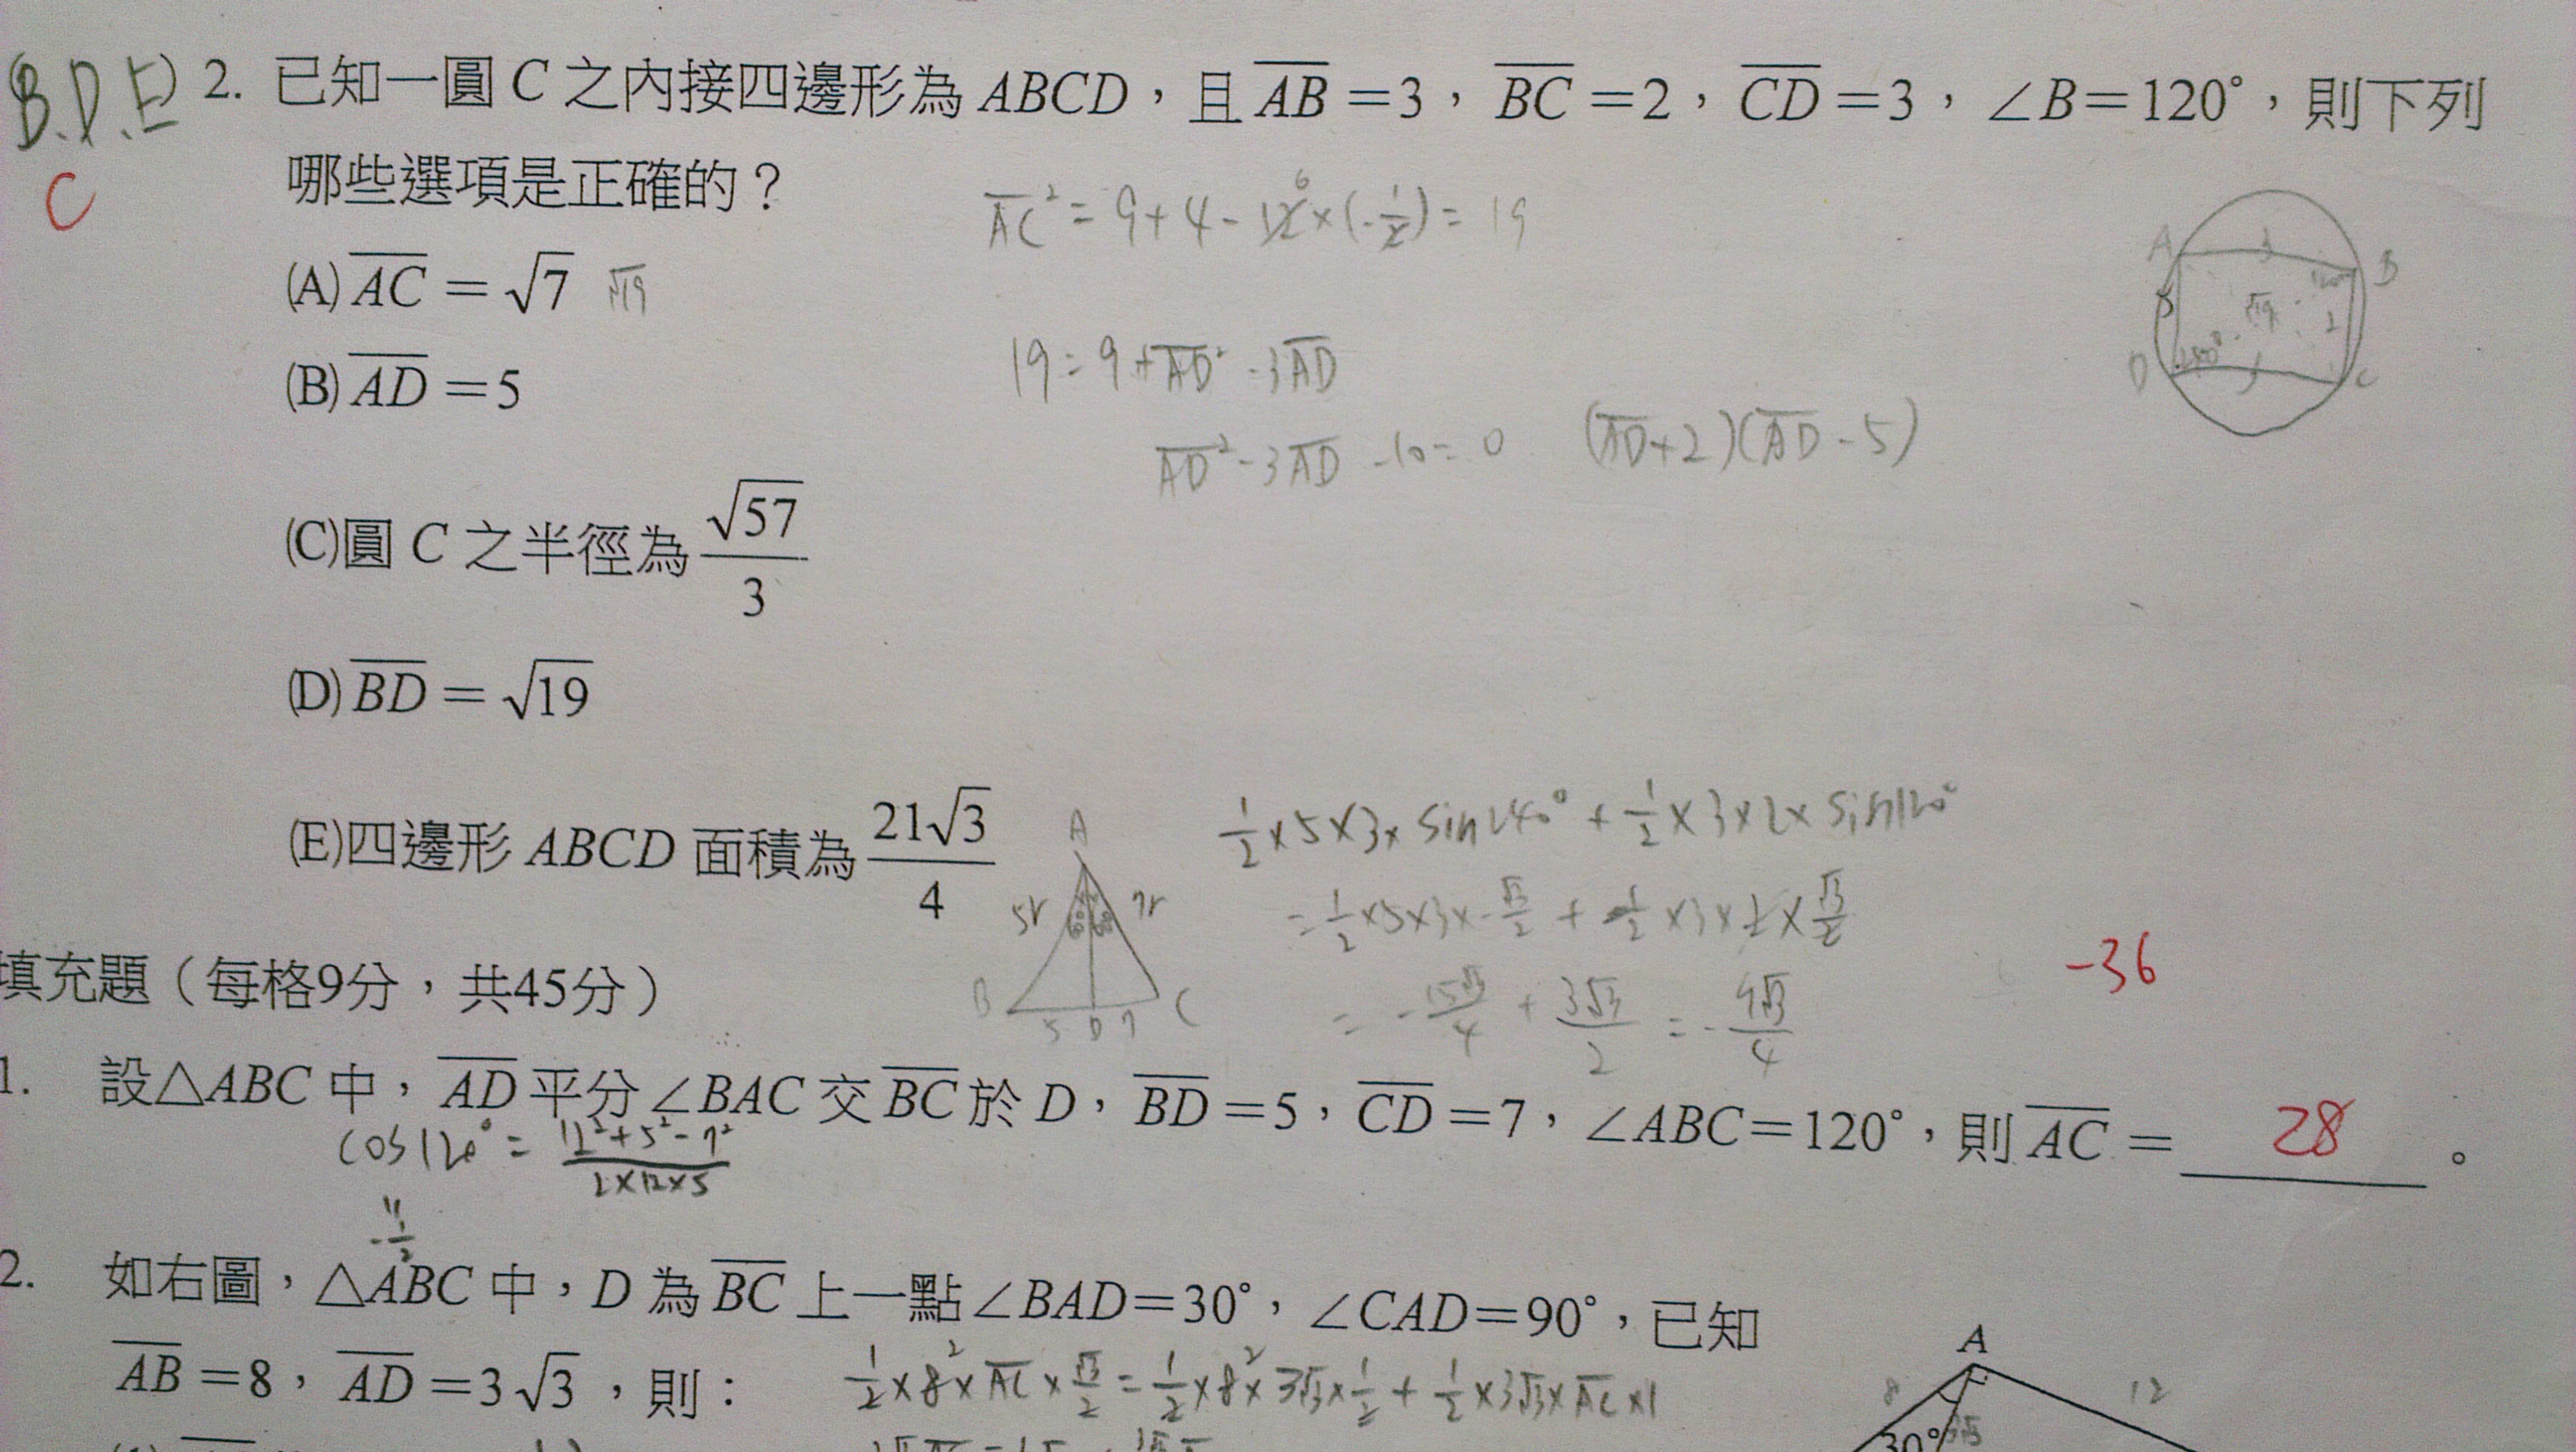 (B.D.E) 2. 已知一圓 C 之內接四邊形為 ABCD，且 \overline{AB}=3，\overline{BC}=2，\overline{CD}=3，∠B=120°，則下列
C 哪些選項是正確的？
\overline{AC}² = 9+4-12×(-1/2) = 19
6
A 3 B
5 √19 120° 2
D 240° 3 C
(A) \overline{AC}=√7 √19
(B) \overline{AD}=5
19=9+\overline{AD}²-3\overline{AD}
\overline{AD}²-3\overline{AD}-10=0 (\overline{AD}+2)(\overline{AD}-5)
(C)圓 C 之半徑為 √57/3
(D) \overline{BD}=√19
(E)四邊形 ABCD 面積為 21√3/4
1/2×5×3×sin240°+1/2×3×2×sin120°
=1/2×5×3×-√3/2+1/2×3×2×√3/2
=-15√3/4+3√3/2=-9√3/4
A
5r 60 60 7r
B 5 D 7 C
-36
填充題（每格9分，共45分）
1. 設△ABC 中，\overline{AD} 平分∠BAC 交 \overline{BC} 於 D，\overline{BD}=5，\overline{CD}=7，∠ABC=120°，則 \overline{AC}= 28 。
cos120°=12²+5²-7²/2×12×5
-1/2
2. 如右圖，△ABC 中，D 為 \overline{BC} 上一點∠BAD=30°，∠CAD=90°，已知
\overline{AB}=8，\overline{AD}=3√3，則：
1/2×8×\overline{AC}×√3/2=1/2×8×3√3×1/2+1/2×3√3×\overline{AC}×1
A
8 12
30° 3√3